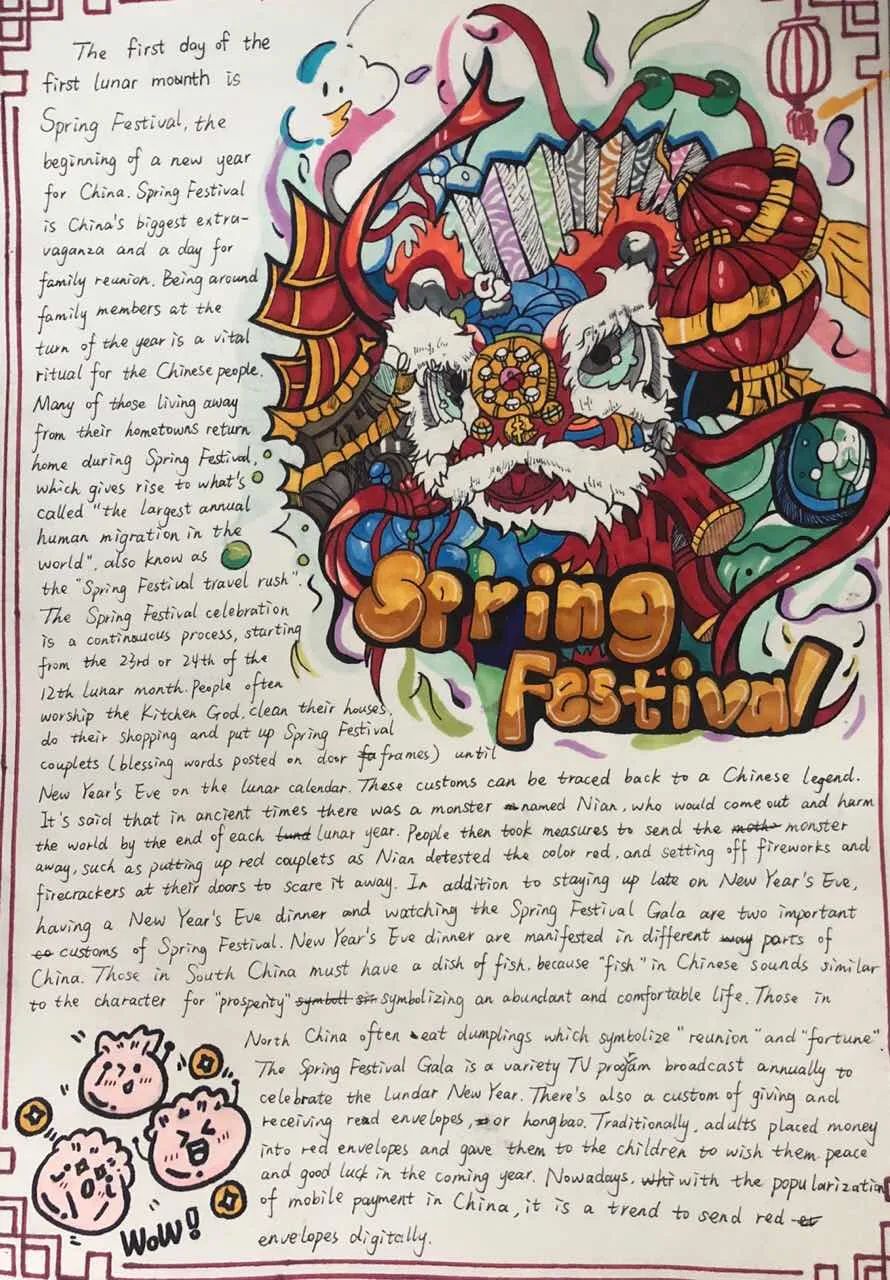 The first day of the
first lunar mounth is
Spring Festival, the
beginning of a new year
for China. Spring Festival
is China's biggest extra-
vaganza and a day for
family reunion. Being around
family members at the
turn of the year is a vital
ritual for the Chinese people.
Many of those living away
from their hometowns return
home during Spring Festival,
which gives rise to what's
called "the largest annual
human migration in the
world", also know as
the "Spring Festival travel rush".
The Spring Festival celebration
is a continuous process, starting
from the 23rd or 24th of the
12th lunar month. People often
worship the Kitchen God, clean their houses,
do their shopping and put up Spring Festival
couplets (blessing words posted on door frames) until
New Year's Eve on the lunar calendar. These customs can be traced back to a Chinese legend.
It's said that in ancient times there was a monster named Nian, who would come out and harm
the world by the end of each lunar year. People then took measures to send the monster
away, such as putting up red couplets as Nian detested the color red, and setting off fireworks and
firecrackers at their doors to scare it away. In addition to staying up late on New Year's Eve,
having a New Year's Eve dinner and watching the Spring Festival Gala are two important
customs of Spring Festival. New Year's Eve dinner are manifested in different parts of
China. Those in South China must have a dish of fish, because "fish" in Chinese sounds similar
to the character for "prosperity" symbolizing an abundant and comfortable life. Those in
North China often eat dumplings which symbolize "reunion" and "fortune".
The Spring Festival Gala is a variety TV program broadcast annually to
celebrate the lundar New Year. There's also a custom of giving and
receiving read envelopes, or hongbao. Traditionally, adults placed money
into red envelopes and gave them to the children to wish them peace
and good luck in the coming year. Nowadays, with the popularization
of mobile payment in China, it is a trend to send red
envelopes digitally.
Spring
Festival
WOW!